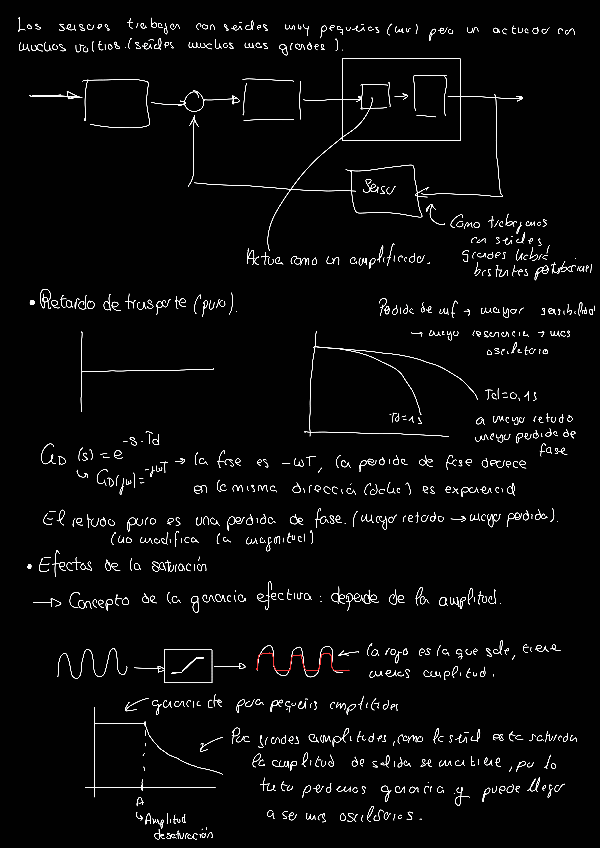 Los sensores trabajan con señales muy pequeñas (mv) pero un actuador con
muchos voltios. (señales muchos mas grandes).
Sensor
Actua como un amplificador.
Como trabajamos
con señales
grandes habrá
bastantes perturbaciones
• Retardo de transporte (puro).
Perdida de mf → mayor sensibilidad
→ mayor resonancia → mas
oscilatorio
Td=1s
Td=0,1s
a mayor retardo
mayor perdida de
fase
G_D (s) = e^-s·Td
↳ G_D(jω)= e^-jωT → la fase es -ωT, la perdida de fase decrece
en la misma dirección es exponencial
El retardo puro es una perdida de fase. (mayor retardo → mayor perdida).
(no modifica la magnitud)
• Efectos de la saturación
→ Concepto de la ganancia efectiva: depende de la amplitud.
← la roja es la que sale, tiene
menos amplitud.
ganancia cte para pequeñas amplitudes
Para grandes amplitudes, como la señal esta saturada
la amplitud de salida se mantiene, por lo
tanto perdemos ganancia y puede llegar
a ser mas oscilatorios.
A
↳ Amplitud
de saturación